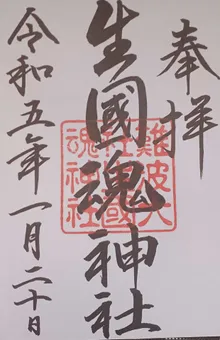 奉拝
生國魂神社
難波大
社生國
魂神社
令和五年一月二十日